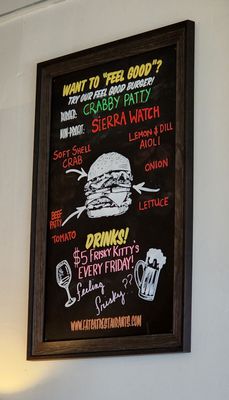 WANT TO "FEEL GOOD"?
TRY OUR FEEL GOOD BURGER!
BURGER: CRABBY PATTY
NON-PROFIT: SIERRA WATCH
LEMON & DILL
AIOLI
SOFT SHELL
CRAB
ONION
LETTUCE
BEEF
PATTY
TOMATO
DRINKS!
$5 FRISKY KITTY'S
EVERY FRIDAY!
Feeling
frisky??
WWW.FATCATRESTAURANTS.COM